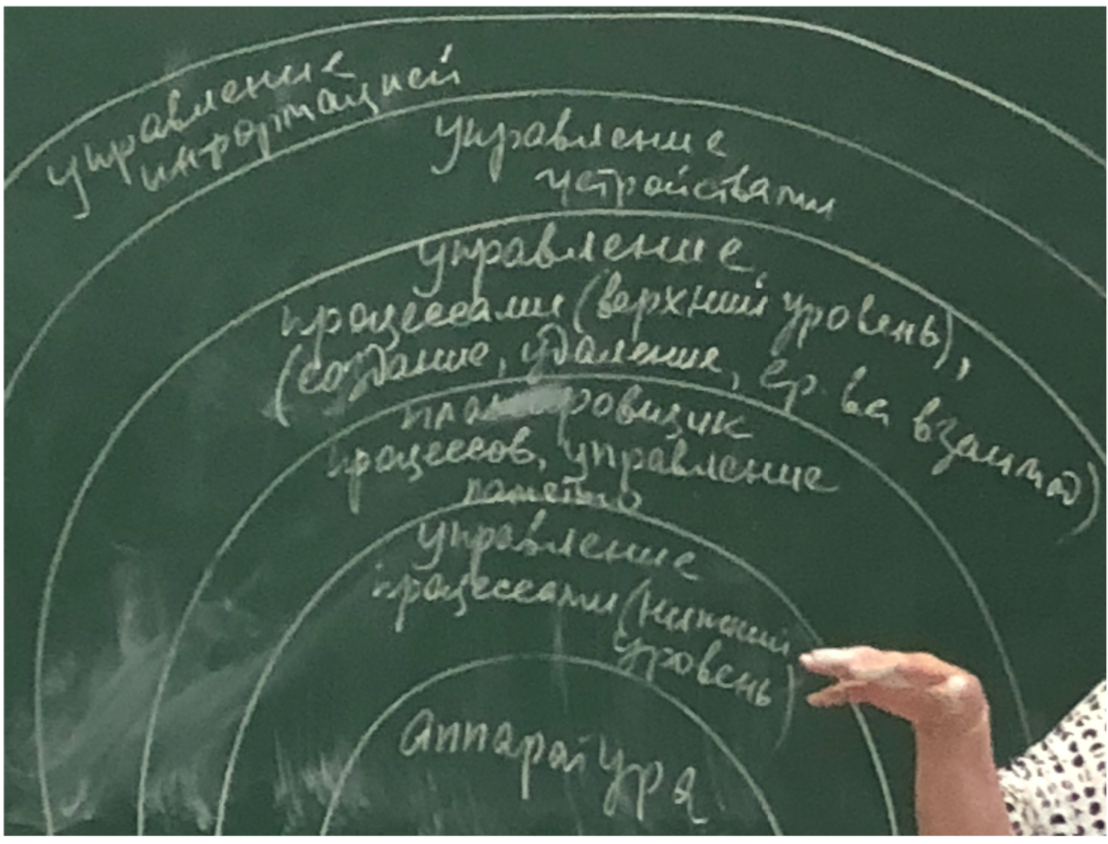 управление
информацией
управление
устройствами
управление
процессами (верхний уровень),
(создание, удаление, ср-ва взаимод)
планировщик
процессов, управление
памятью
управление
процессами (нижний
уровень)
аппаратура